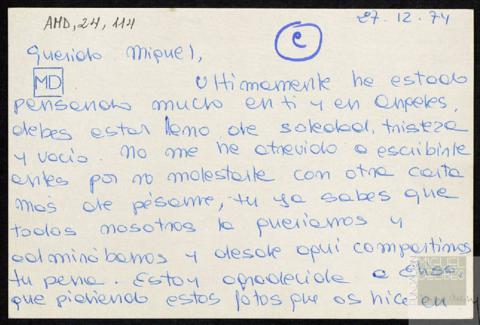 AMD, 24, 114
27. 12. 74
e
Querido Miguel,
MD
Ultimamente he estado
pensando mucho en ti y en Angeles,
debes estar lleno de soledad, tristeza
y vacio. No me he atrevido a escribirte
antes por no molestarte con otra carta
mas de pésame, tu ya sabes que
todos nosotros la queriamos y
admirábamos y desde aqui compartimos
tu pena. Estoy agradecida a
que pidiendo estos fotos que os hice en
FUNDACIÓN MIGUEL DELIBES